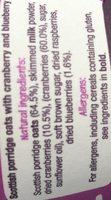 Scottish porridge oats with cranberry and blueberry
Natural ingredients:
Scottish porridge oats (64.5%), skimmed milk powder,
dried cranberries (10.5%), (cranberries (60.0%), sugar,
sunflower oil), soft brown sugar, dried raspberries,
dried strawberries (1.6%).
Allergens:
For allergens, including cereals containing gluten,
see ingredients in bold.